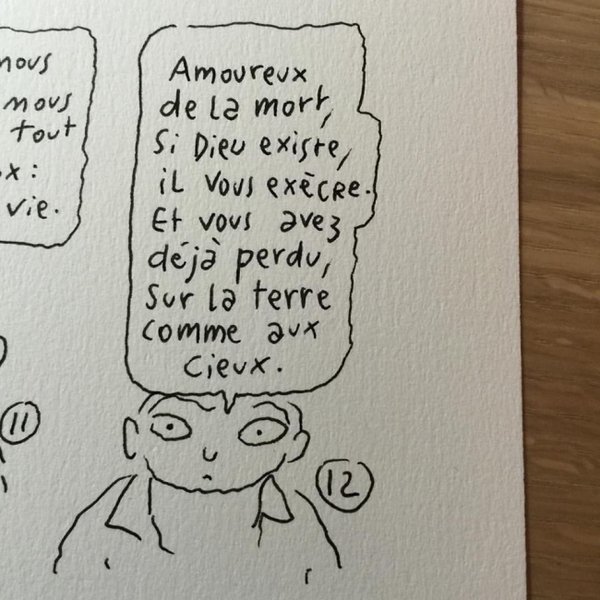 nous
nous
tout
x:
vie.
Amoureux
de la mort,
Si Dieu existe,
il vous exècre.
Et vous avez
déjà perdu,
Sur la terre
comme aux
cieux.
11
12